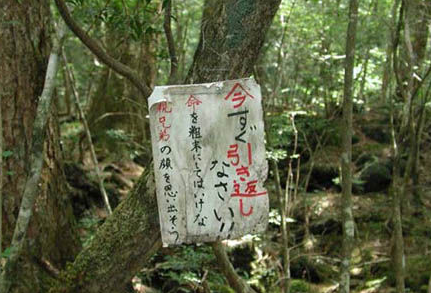 今すぐ引き返し
なさい!!
命を粗末にしてはいけな
親兄弟の顔を思い出そう